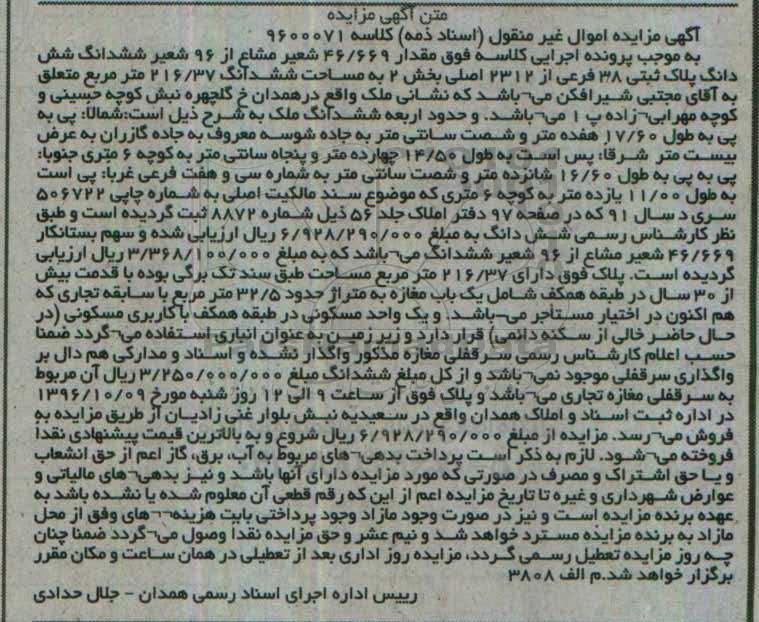 متن آگهی مزایده
آگهی مزایده اموال غیر منقول (اسناد ذمه) کلاسه ۹۶۰۰۰۷۱
به موجب پرونده اجرایی کلاسه فوق مقدار ۴۶/۶۶۹ شعیر مشاع از ۹۶ شعیر ششدانگ شش
دانگ پلاک ثبتی ۳۸ فرعی از ۲۳۱۲ اصلی بخش ۲ به مساحت ششدانگ ۲۱۶/۳۷ متر مربع متعلق
به آقای مجتبی شیرافکن می¬باشد که نشانی ملک واقع درهمدان خ گلچهره نبش کوچه حسینی و
کوچه مهرابی¬زاده پ ۱ می¬باشد. و حدود اربعه ششدانگ ملک به شرح ذیل است:شمالا: پی به
پی به طول ۱۷/۶۰ هفده متر و شصت سانتی متر به جاده شوسه معروف به جاده گازران به عرض
بیست متر شرقا: پس است به طول ۱۴/۵۰ چهارده متر و پنجاه سانتی متر به کوچه ۶ متری جنوبا:
پی به پی به طول ۱۶/۶۰ شانزده متر و شصت سانتی متر به شماره سی و هفت فرعی غربا: پی است
به طول ۱۱/۰۰ یازده متر به کوچه ۶ متری که موضوع سند مالکیت اصلی به شماره چاپی ۵۰۶۷۲۲
سری د سال ۹۱ که در صفحه ۹۷ دفتر املاک جلد ۵۶ ذیل شماره ۸۸۷۲ ثبت گردیده است و طبق
نظر کارشناس رسمی شش دانگ به مبلغ ۶/۹۲۸/۲۹۰/۰۰۰ ریال ارزیابی شده و سهم بستانکار
۴۶/۶۶۹ شعیر مشاع از ۹۶ شعیر ششدانگ می¬باشد که به مبلغ ۳/۳۶۸/۱۰۰/۰۰۰ ریال ارزیابی
گردیده است. پلاک فوق دارای ۲۱۶/۳۷ متر مربع مساحت طبق سند تک برگی بوده با قدمت بیش
از ۳۰ سال در طبقه همکف شامل یک باب مغازه به متراژ حدود ۳۲/۵ متر مربع با سابقه تجاری که
هم اکنون در اختیار مستأجر می¬باشد. و یک واحد مسکونی در طبقه همکف با کاربری مسکونی (در
حال حاضر خالی از سکنه دائمی) قرار دارد و زیر زمین به عنوان انباری استفاده می¬گردد ضمنا
حسب اعلام کارشناس رسمی سرقفلی مغازه مذکور واگذار نشده و اسناد و مدارکی هم دال بر
واگذاری سرقفلی موجود نمی¬باشد و از کل مبلغ ششدانگ مبلغ ۳/۲۵۰/۰۰۰/۰۰۰ ریال آن مربوط
به سرقفلی مغازه تجاری می¬باشد و پلاک فوق از ساعت ۹ الی ۱۲ روز شنبه مورخ ۱۳۹۶/۱۰/۰۹
در اداره ثبت اسناد و املاک همدان واقع در سعیدیه نبش بلوار غنی زادیان از طریق مزایده به
فروش می¬رسد. مزایده از مبلغ ۶/۹۲۸/۲۹۰/۰۰۰ ریال شروع و به بالاترین قیمت پیشنهادی نقدا
فروخته می¬شود. لازم به ذکر است پرداخت بدهی¬های مربوط به آب، برق، گاز اعم از حق انشعاب
و یا حق اشتراک و مصرف در صورتی که مورد مزایده دارای آنها باشد و نیز بدهی¬های مالیاتی و
عوارض شهرداری و غیره تا تاریخ مزایده اعم از این که رقم قطعی آن معلوم شده یا نشده باشد به
عهده برنده مزایده است و نیز در صورت وجود مازاد وجوه پرداختی بابت هزینه¬¬های وفق از محل
مازاد به برنده مزایده مسترد خواهد شد و نیم عشر و حق مزایده نقدا وصول می¬گردد ضمنا چنان
چه روز مزایده تعطیل رسمی گردد، مزایده روز اداری بعد از تعطیلی در همان ساعت و مکان مقرر
برگزار خواهد شد.م الف ۳۸۰۸
رییس اداره اجرای اسناد رسمی همدان - جلال حدادی